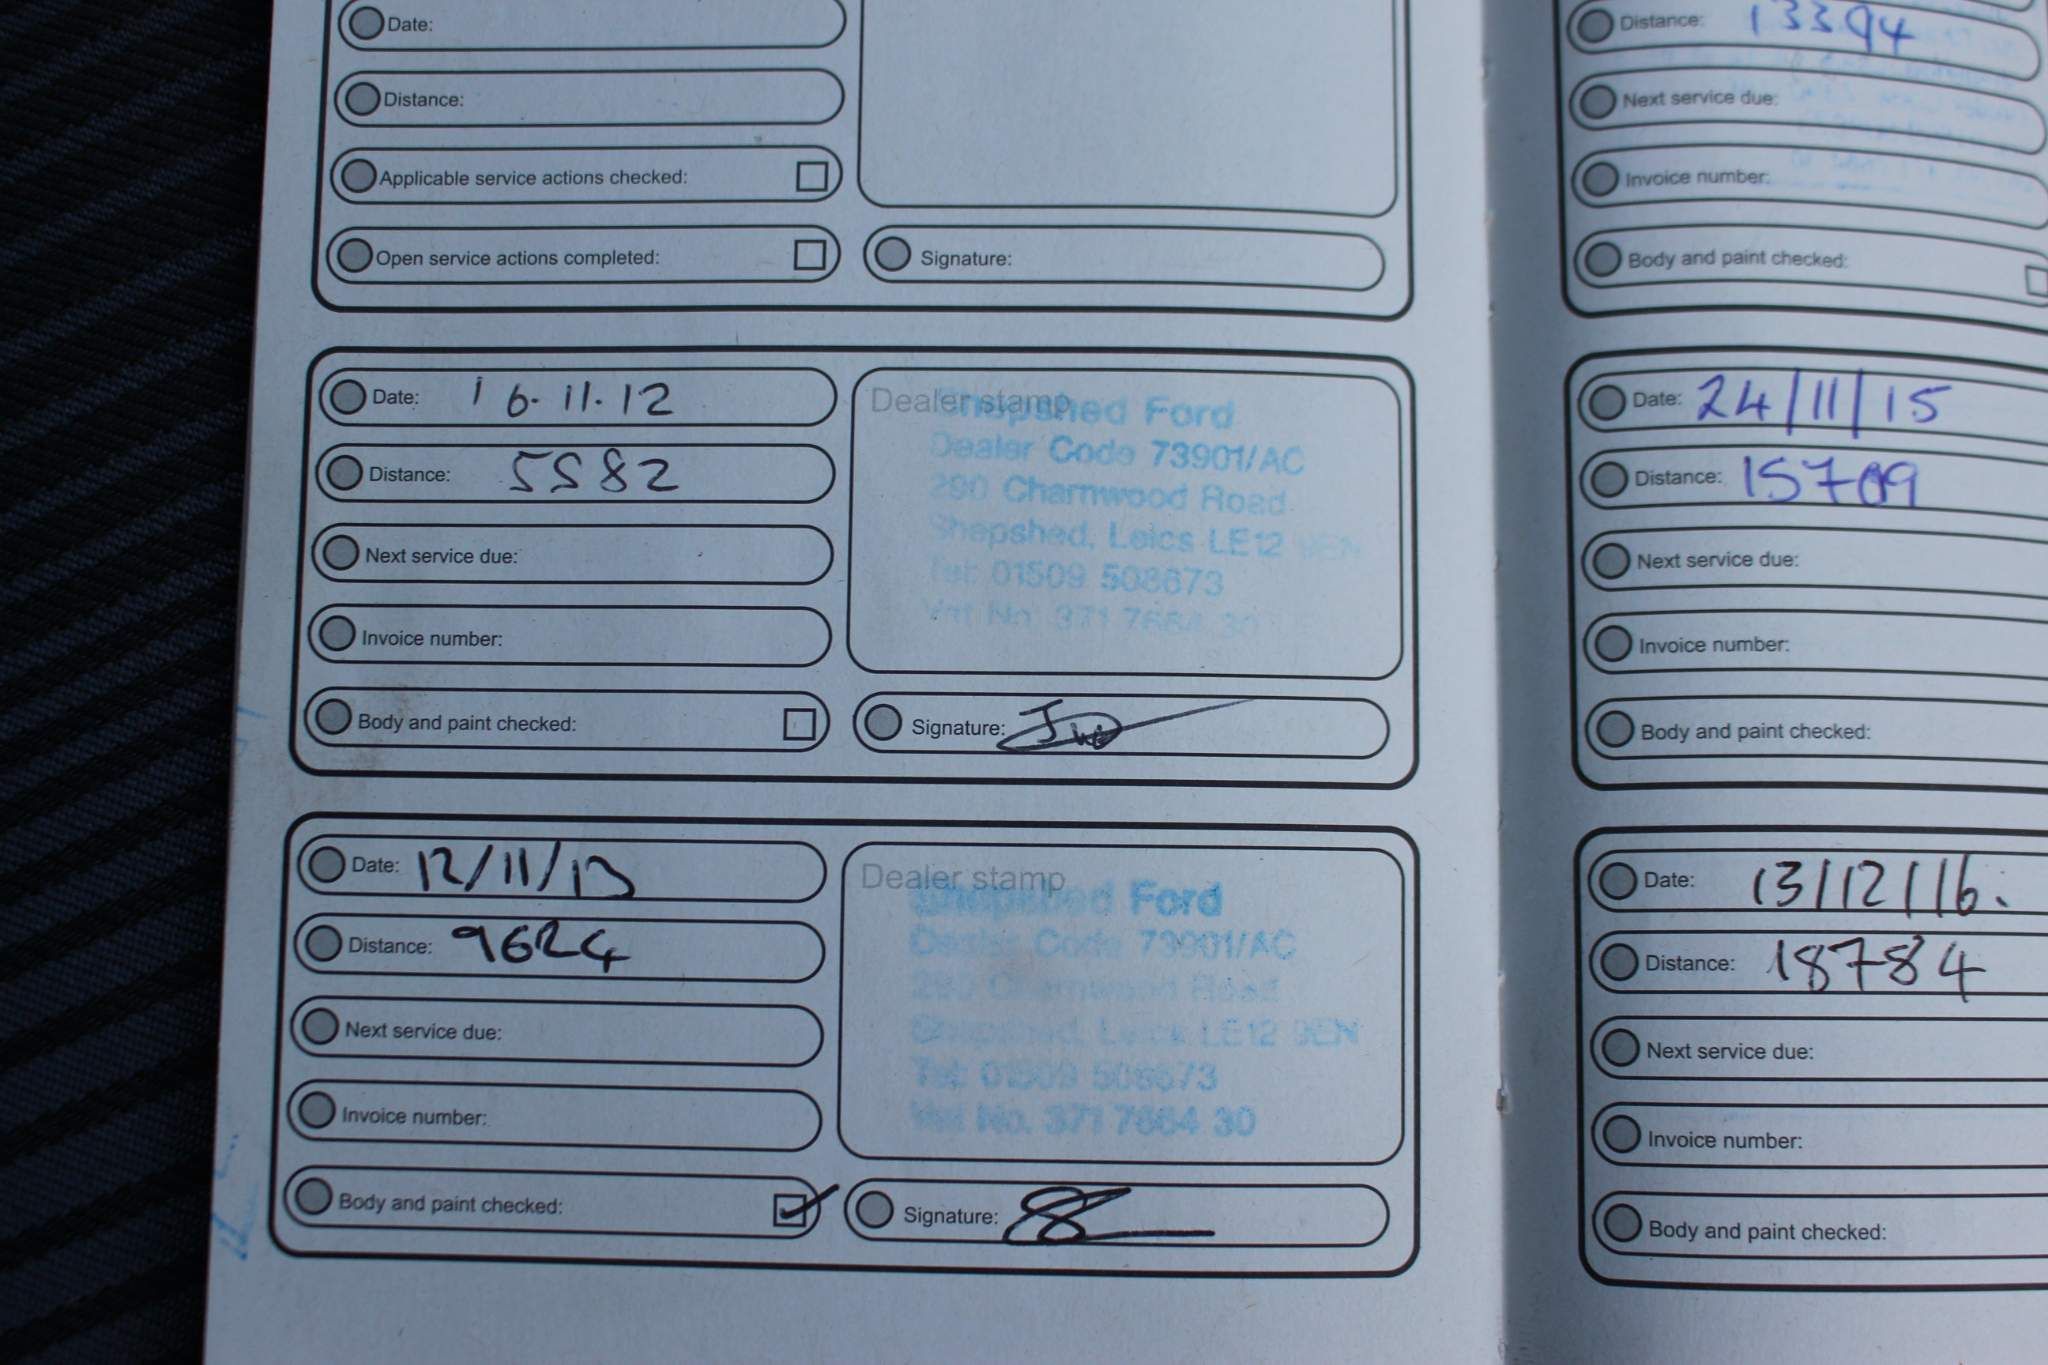 Date:
Distance:
Applicable service actions checked:
Open service actions completed:
Signature:
Date: 16.11.12
Distance: 5582
Next service due:
Invoice number:
Body and paint checked:
Dealer stamp
Shepshed Ford
Dealer Code 73901/AC
290 Charnwood Road
Shepshed, Leics LE12 9EN
Tel: 01509 508673
Vat No. 371 7664 30
Signature:
Date: 12/11/13
Distance: 9624
Next service due:
Invoice number:
Body and paint checked:
Dealer stamp
Shepshed Ford
Dealer Code 73901/AC
290 Charnwood Road
Shepshed, Leics LE12 9EN
Tel: 01509 508673
Vat No. 371 7664 30
Signature:
Distance: 13394
Next service due:
Invoice number:
Body and paint checked:
Date: 24/11/15
Distance: 15709
Next service due:
Invoice number:
Body and paint checked:
Date: 13/12/16.
Distance: 18784
Next service due:
Invoice number:
Body and paint checked: